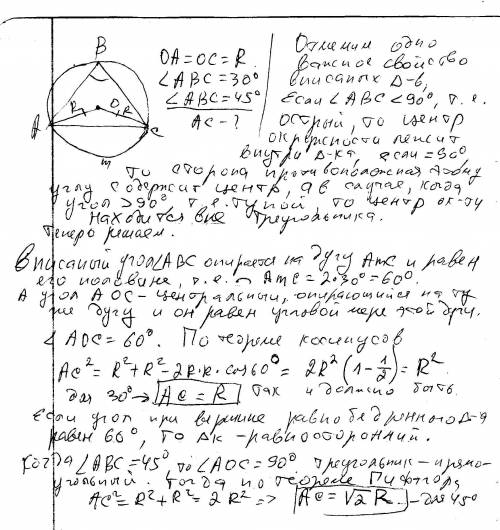 B
OA=OC=R.
∠ABC=30°
∠ABC=45°
AC-?
Отметим одно
важное свойство
вписаных Δ-в,
если ∠ABC<90°, т.е.
острый, то центр
окружности лежит
внутри Δ-ка, если =90°
R
O
R
A
C
m
то сторона противоположная этому
углу содержит центр, а в случае, когда
угол >90° т.е. тупой, то центр ок-ти
находится вне треугольника.
Теперь решаем.
Вписаный угол ∠ABC опирается на дугу AmC и равен
его половине, т.е. ◡AmC=2·30°=60°.
А угол AOC-центральный, опирающийся на ту
же дугу и он равен угловой мере этой дуги.
∠AOC=60°. По теореме косинусов
AC²=R²+R²-2R·R·cos60°=2R²(1-1/2)=R².
для 30°→ AC=R Так и должно быть.
Если угол при вершине равнобедренного Δ-а
равен 60°, то Δк-равносторонний.
Когда ∠ABC=45°, то ∠AOC=90° треугольник-прямо-
угольный. Тогда по теореме Пифагора
AC²=R²+R²=2R² => AC=√2R.-для 45°